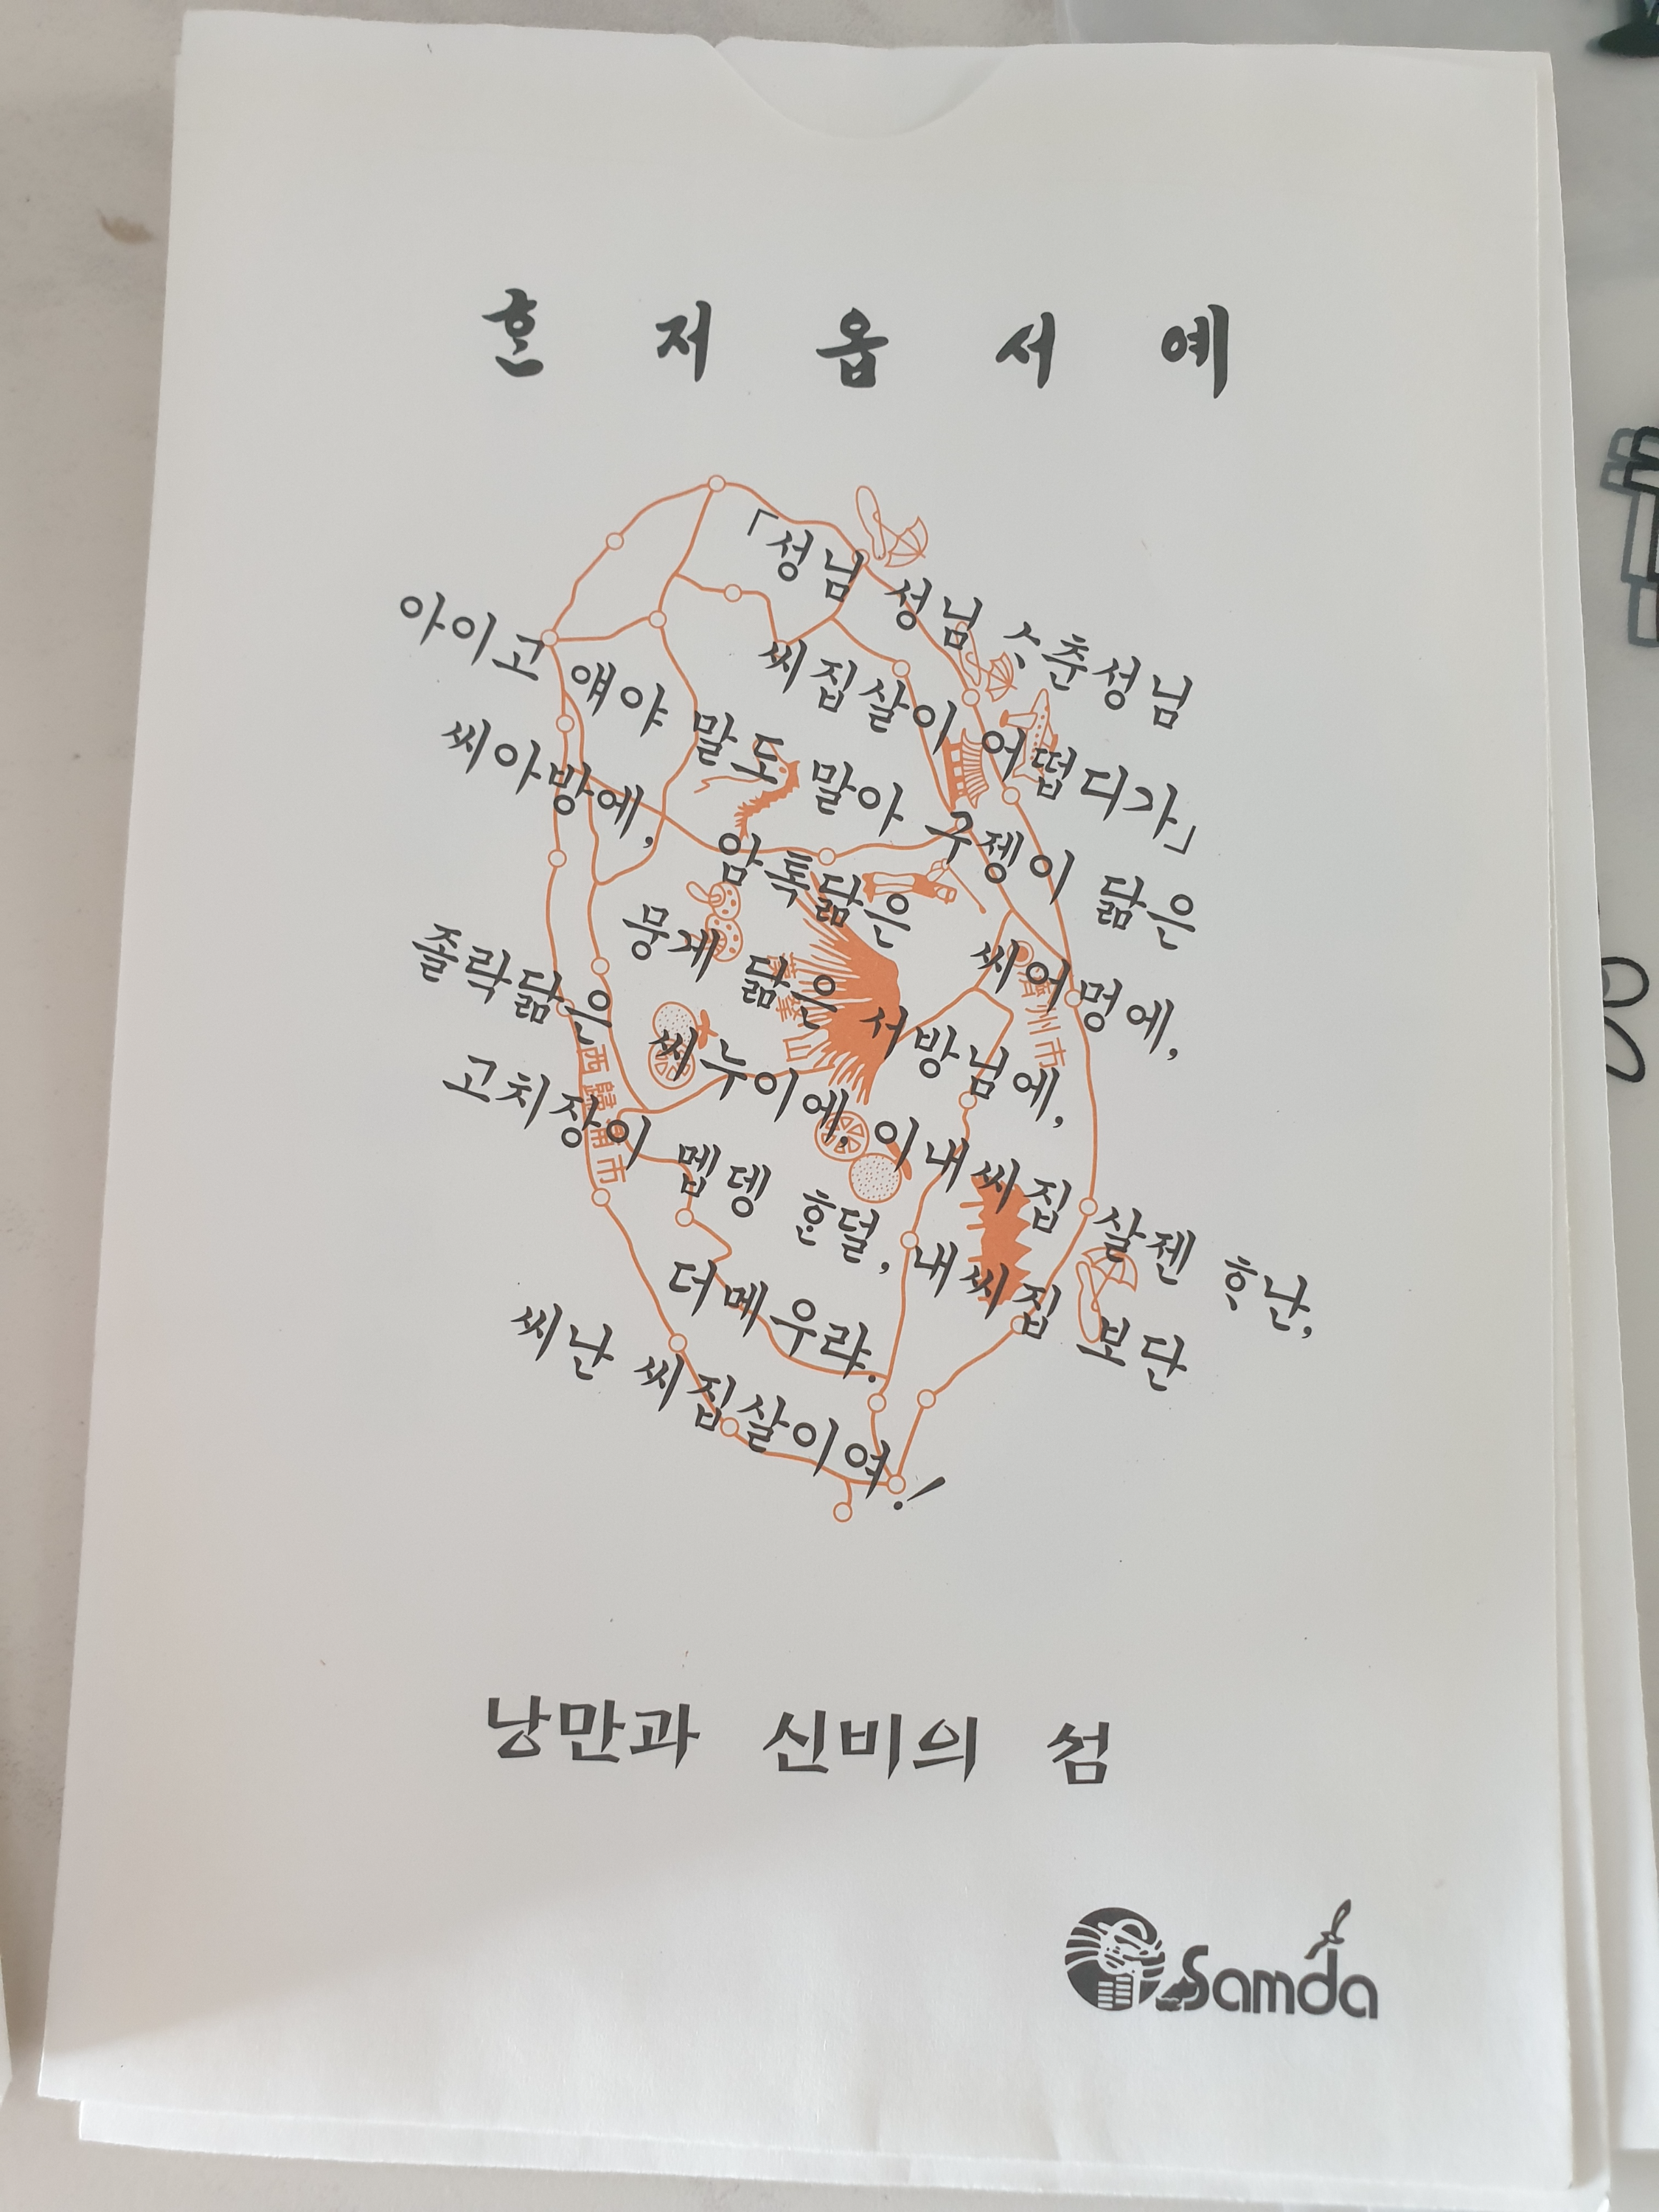 ᄒᆞᆫ 저 옵 서 예
「성님 성님 ᄉᆞ춘성님
씨집살이 어떱디가」
아이고 얘야 말도 말아 구젱이 닮은
씨아방에, 암톡닮은 씨어멍에,
뭉게 닮은 서방님에,
졸락닮은 씨누이에, 이내씨집 살젠 ᄒᆞ난,
고치장이 멥뎅 ᄒᆞᆫ덜, 내씨집 보단
더메우랴.
씨난 씨집살이여!
濟州市
西歸浦市
낭만과 신비의 섬
Samda